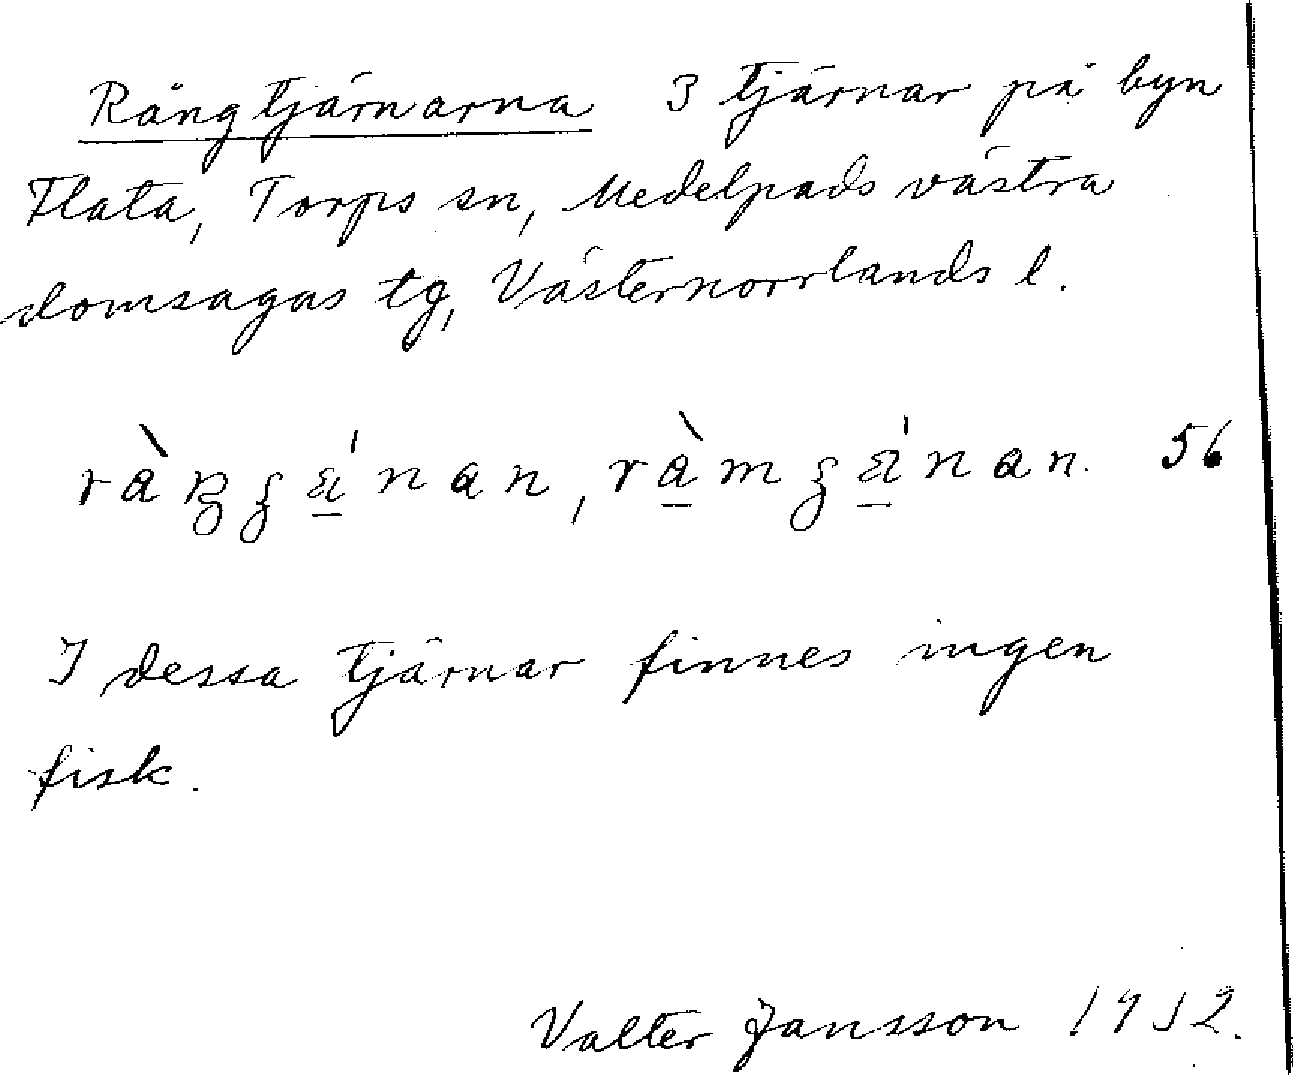 Rängtjärnarna 3 tjärnar på byn
Flata, Torps sn, Medelpads västra
domsagas tg, Västernorrlands l.
56
I dessa tjärnar finnes ingen
fisk.
Valter Jansson 1932.